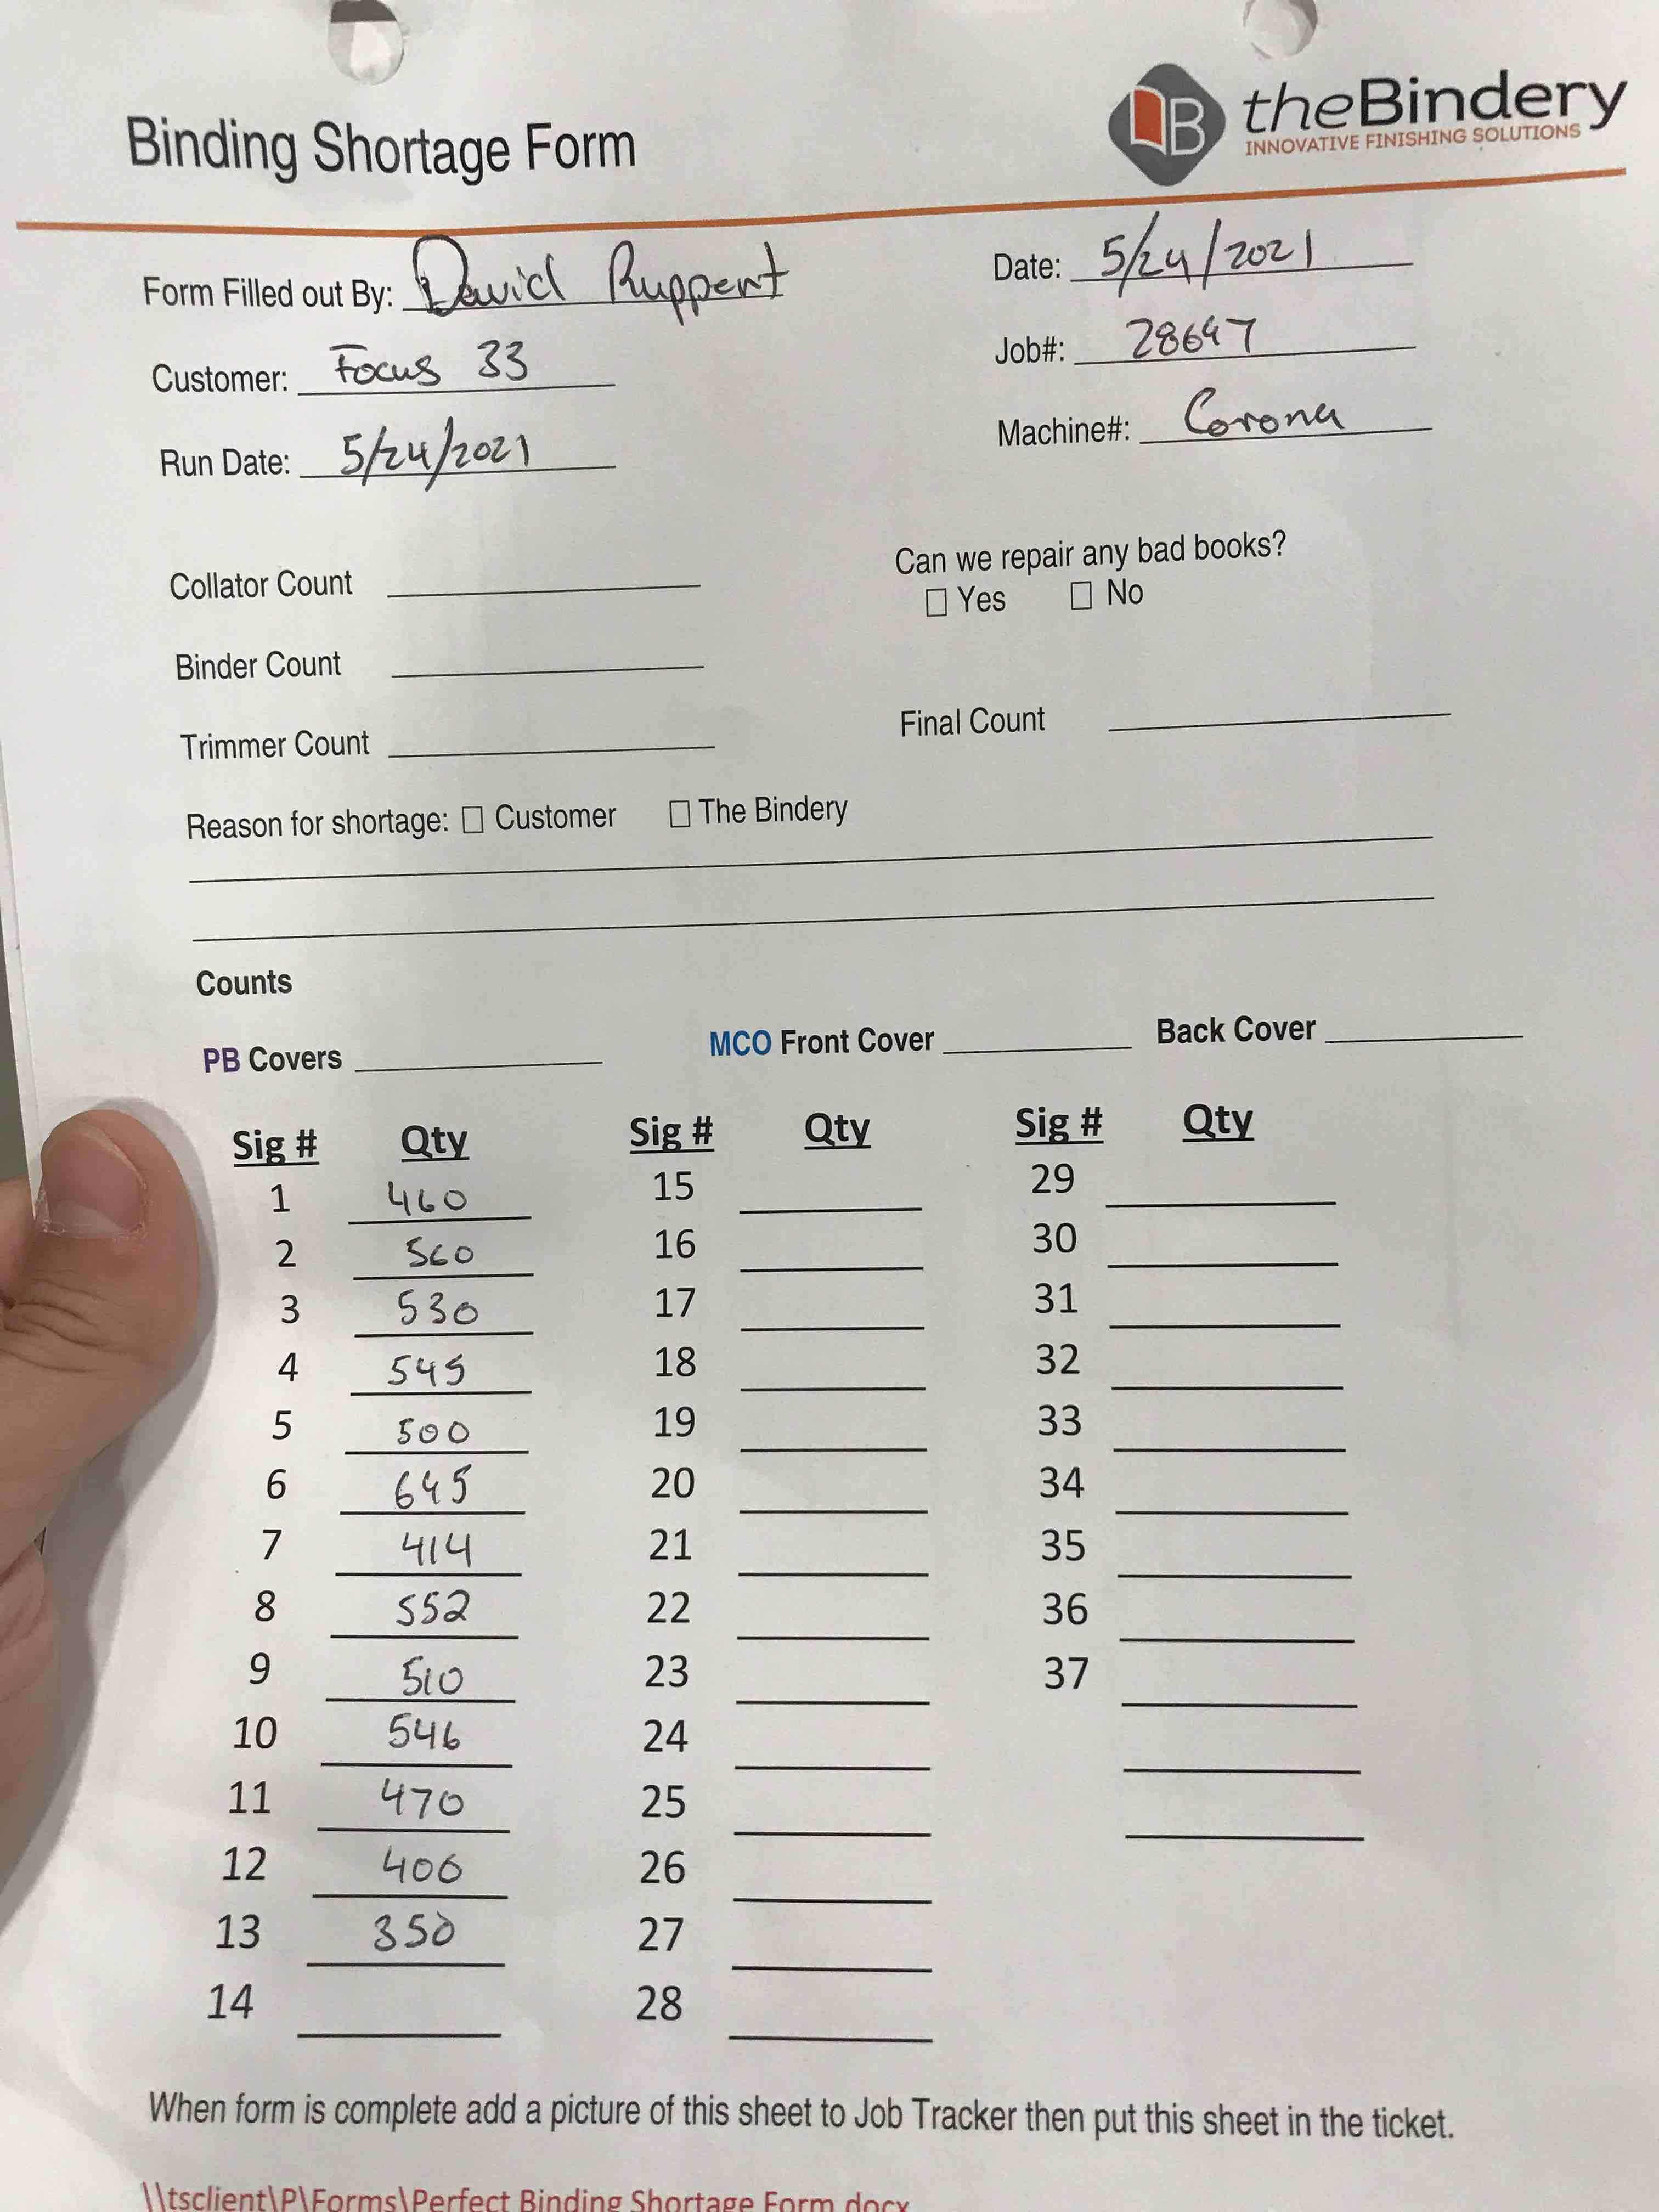 theBindery
INNOVATIVE FINISHING SOLUTIONS
Binding Shortage Form
Form Filled out By: David Ruppert Date: 5/24/2021
Customer: Focus 33 Job#: 28647
Run Date: 5/24/2021 Machine#: Corona
Collator Count Can we repair any bad books?
☐ Yes ☐ No
Binder Count
Trimmer Count Final Count
Reason for shortage: ☐ Customer ☐ The Bindery
Counts
PB Covers MCO Front Cover Back Cover
Sig # Qty Sig # Qty Sig # Qty
1 460 15 29
2 560 16 30
3 530 17 31
4 545 18 32
5 500 19 33
6 645 20 34
7 414 21 35
8 552 22 36
9 510 23 37
10 546 24
11 470 25
12 400 26
13 350 27
14 28
When form is complete add a picture of this sheet to Job Tracker then put this sheet in the ticket.
\\tsclient\P\Forms\Perfect Binding Shortage Form.docx